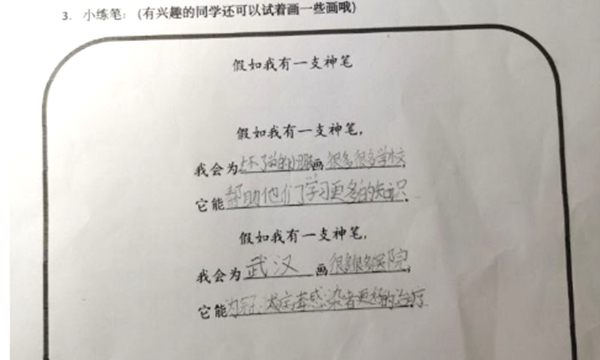 3. 小练笔：（有兴趣的同学还可以试着画一些画哦）
假如我有一支神笔
假如我有一支神笔，
我会为上不了学的小孩画很多很多学校，
它能帮助他们学习更多的知识。
假如我有一支神笔，
我会为武汉画很多很多医院，
它能为冠状病毒感染者更好的治疗。